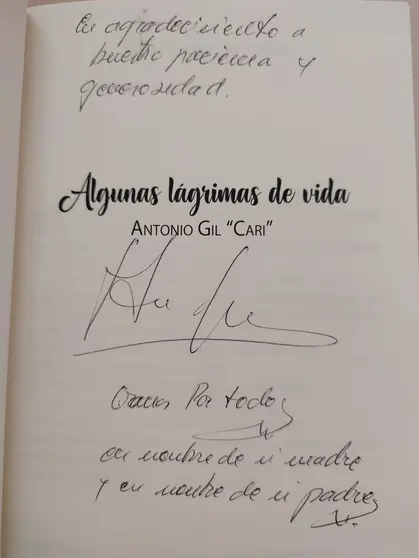 En agradecimiento a
vuestra paciencia y
generosidad.
Algunas lágrimas de vida
ANTONIO GIL “CARI”
Gracias Por todo
en nombre de mi madre
y en nombre de mi padre